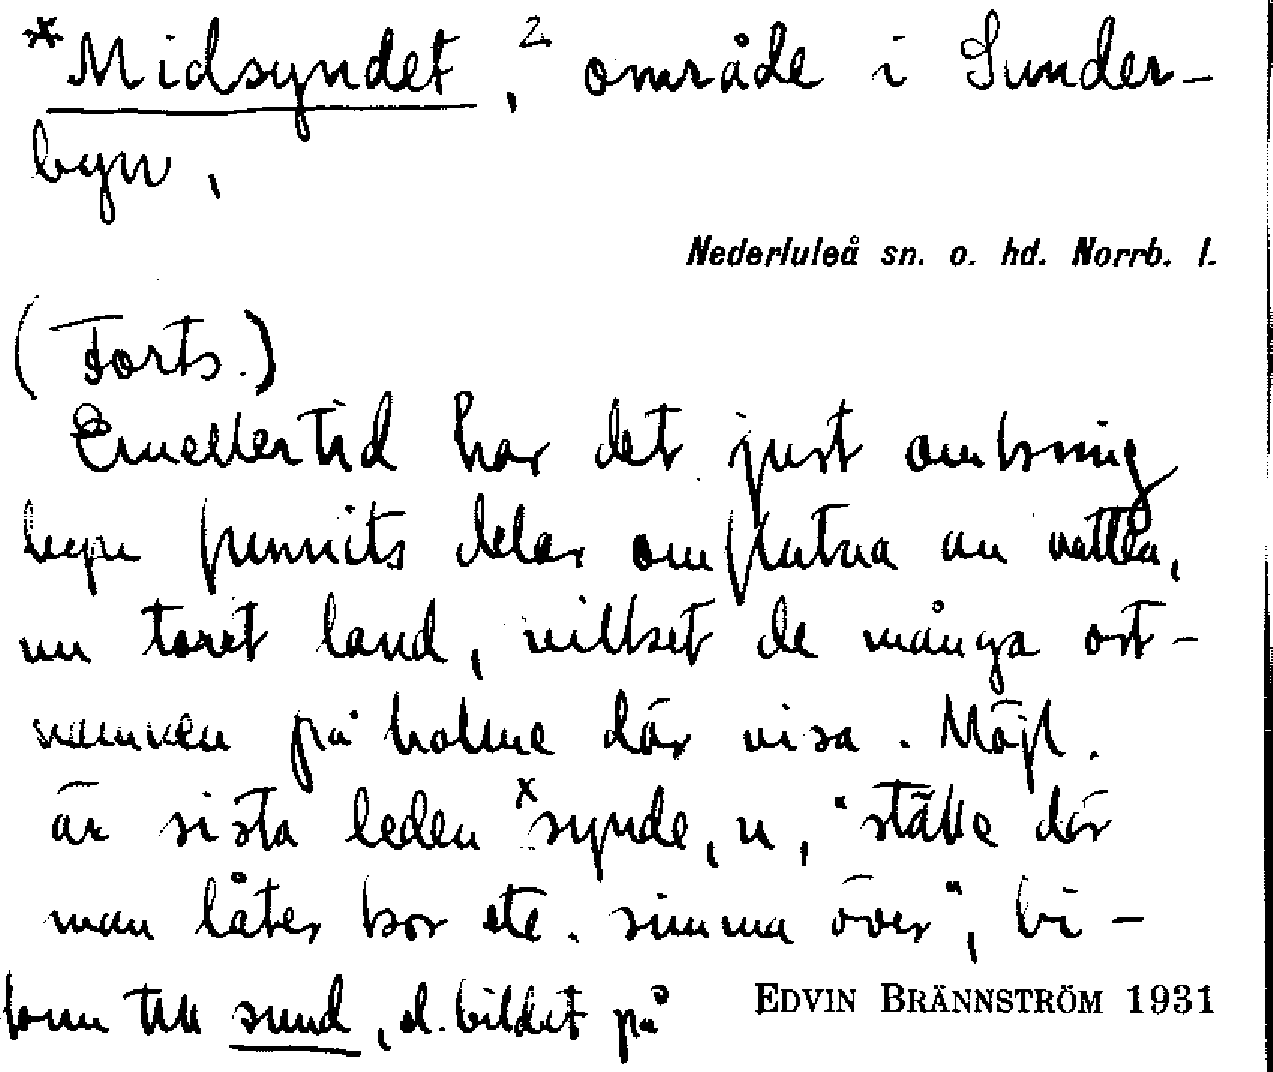 *Midsyndet,² område i Sunder-
byn,
Nederluleå sn. o. hd. Norrb. l.
(Forts.)
Emellertid har det just omkring
byn funnits delar omflutna av vatten,
nu torrt land, vilket de många ort-
namnen på holme där visa. Möjl.
är sista leden *synde, n, "ställe där
man låter kor etc. simma över", bi-
form till sund, el. bildat på
EDVIN BRÄNNSTRÖM 1931